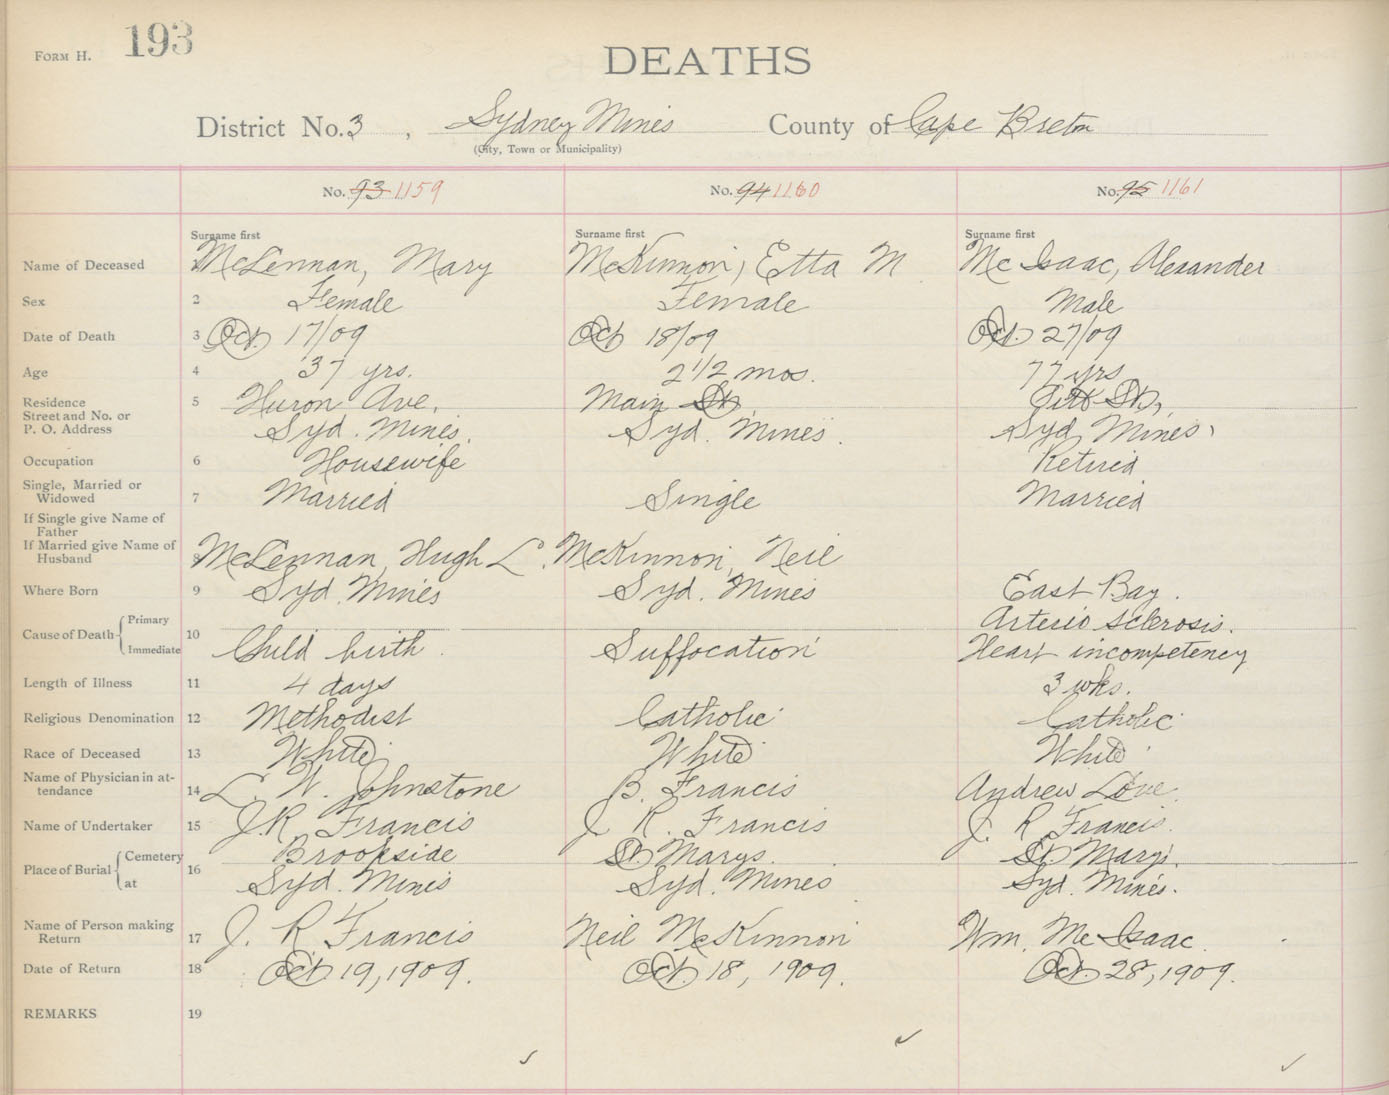 FORM H. 193
DEATHS
District No. 3, Sydney Mines County of Cape Breton
(City, Town or Municipality)
No. 93 1159 No. 94 1160 No. 95 1161
Surname first Surname first Surname first
Name of Deceased McLennan, Mary McKinnon, Etta M McIsaac, Alexander
Sex 2 Female Female Male
Date of Death 3 Oct. 17/09 Oct 18/09 Oct. 27/09
Age 4 37 yrs. 2 1/2 mos. 77 yrs
Residence 5 Huron Ave. Main St. Pitt St.,
Street and No. or
P. O. Address Syd. Mines. Syd. Mines. Syd Mines.
Occupation 6 Housewife Retired
Single, Married or
Widowed 7 Married Single Married
If Single give Name of
Father
If Married give Name of
Husband 8 McLennan, Hugh L. McKinnon, Neil
Where Born 9 Syd. Mines Syd. Mines East Bay.
Cause of Death 10 Primary Arterio sclerosis.
Immediate Child birth. Suffocation Heart incompetency
Length of Illness 11 4 days 3 wks.
Religious Denomination 12 Methodist Catholic Catholic
Race of Deceased 13 White White White
Name of Physician in at-
tendance 14 L. W. Johnstone B. Francis Andrew Love.
Name of Undertaker 15 J. R Francis J R. Francis J. R Francis.
Place of Burial 16 Cemetery Brookside St. Marys. St. Mary's.
at Syd. Mines Syd. Mines Syd. Mines.
Name of Person making
Return 17 J. R Francis Neil McKinnon Wm. McIsaac.
Date of Return 18 Oct. 19, 1909. Oct. 18, 1909. Oct. 28, 1909.
REMARKS 19